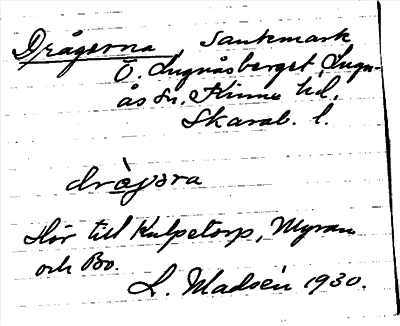 Drågerna, sankmark
Ö. Lugnåsberget, Lugn-
ås sn. Kinne hd.
Skarab. l.
dràgəra
Hör till Kulpetorp, Myran
och Bo.
L. Madsén 1930.